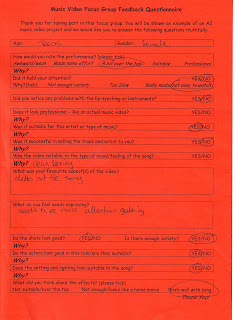 Music Video Focus Group Feedback Questionnaire
Thank you for taking part in this focus group. You will be shown an example of an A2
music video project and we would like you to answer the following questions truthfully.
Age: Gender: female
How would you rate the performance? (please tick)
Awkward Made some effort A bit over the top Suitable Professional
Why?
Did it hold your attention? YES/NO
Why?(tick) Not enough variety Too Slow Badly made
Did you notice any problems with the lip-syncing or instruments? YES/NO
Does it look professional - like an actual music video? YES/NO
Why?
Was it suitable for this artist or type of music? YES/NO
Why?
Was it successful in selling the track and artist to you? YES/NO
Why?
Was the video suitable to the type of mood/feeling of the song? YES/NO
Why?
What was your favourite aspect(s) of the video?
What do you feel needs improving?
needs to be more attention grabbing
Do the shots look good? YES/NO Is there enough variety? YES/NO
Why?
Do the actors look good in this role/are they suitable? YES/NO
Why?
Does the setting and lighting look suitable to the song? YES/NO
Why?
What did you think about the effects? (please tick)
Not suitable/over the top Not enough/looks like a home movie Work well with song
Thank You!